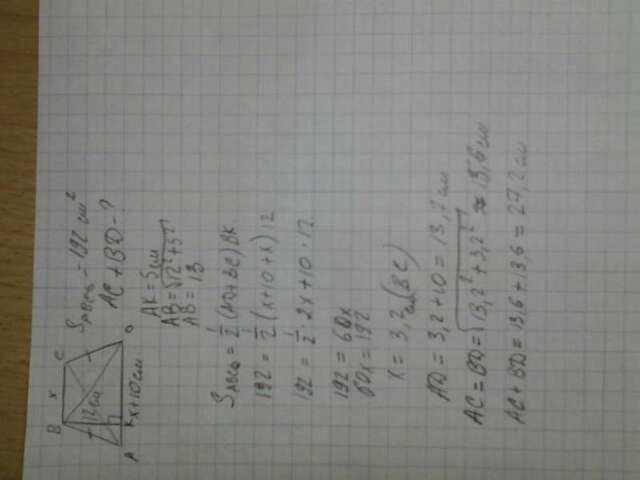 B x C
12см
A K x+10см D
S ABCD = 192 см²
AC + BD - ?
AK = 5см
AB = √12² + 5²
AB = 13
S ABCD = 1/2 (AD + BC) BK
192 = 1/2 (x+10+x) 12
192 = 1/2 · 2x + 10 · 12
192 = 60x
60x = 192
x = 3,2 см (BC)
AD = 3,2 + 10 = 13,2 см
AC = BD = √13,2² + 3,2² ≈ 13,6 см
AC + BD = 13,6 + 13,6 = 27,2 см